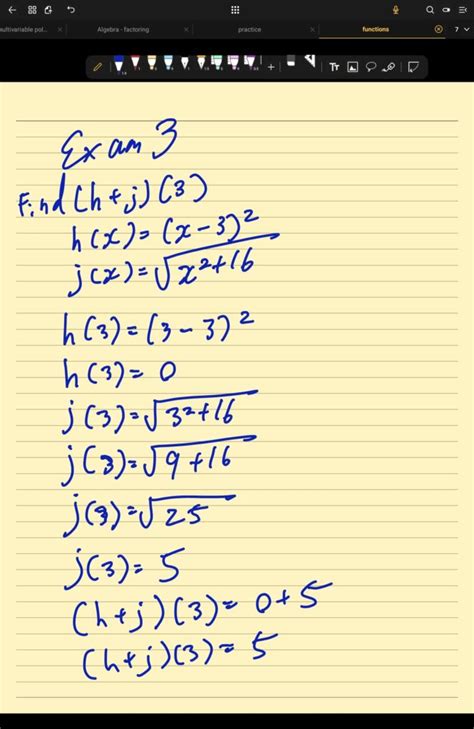 ultivariable pol...
Algebra - factoring
practice
functions
7
Tr
Exam 3
Find (h+j)(3)
h(x)=(x-3)²
j(x)=√x²+16
h(3)=(3-3)²
h(3)=0
j(3)=√3²+16
j(3)=√9+16
j(3)=√25
j(3)=5
(h+j)(3)=0+5
(h+j)(3)=5